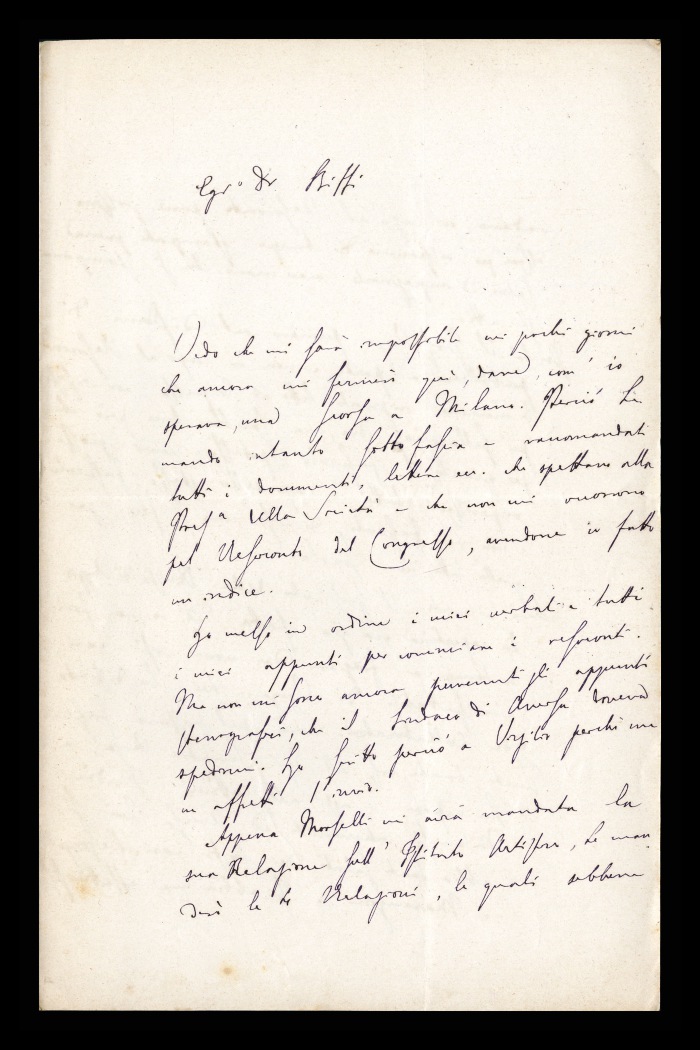 Egr.o Dr Biffi
Vedo che mi sarà impossibile nei pochi giorni
che ancora mi fermerò quì, dare, com' io
sperava, una scorsa a Milano. Perciò Le
mando intanto sotto fascia e raccomandati
tutti i documenti, lettere ecc. che spettano alla
Presa della Società e che non mi occorrono
pel Resoconto del Congresso, avendone io fatto
un indice.
Ho messo in ordine i miei verbali e tutti
i miei appunti per cominciare i resoconti.
Ma non mi sono ancora pervenuti gli appunti
stenografici, che il Sindaco di Aversa doveva
spedirmi. Ho scritto perciò a Virgilio perchè me
ne affretti l'invio.
Appena Morselli mi avrà mandata la
sua Relazione sull' Istituto Artistico, Le man
derò le Relazioni, le quali sebbene